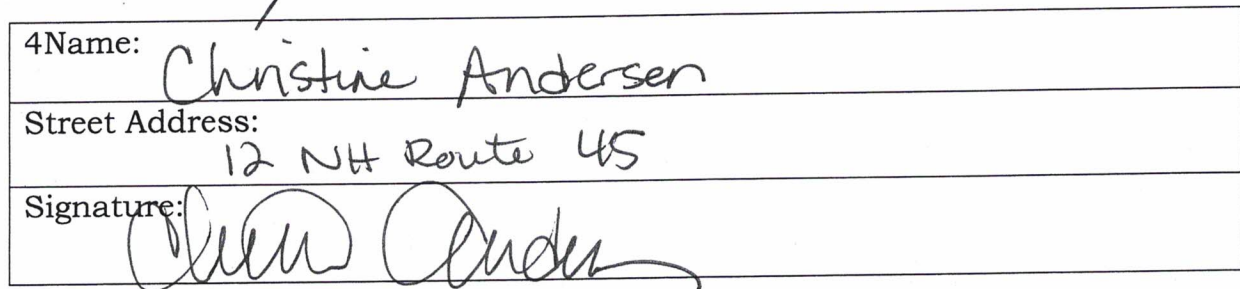 4Name: Christine Andersen
Street Address:
12 NH Route 45
Signature: